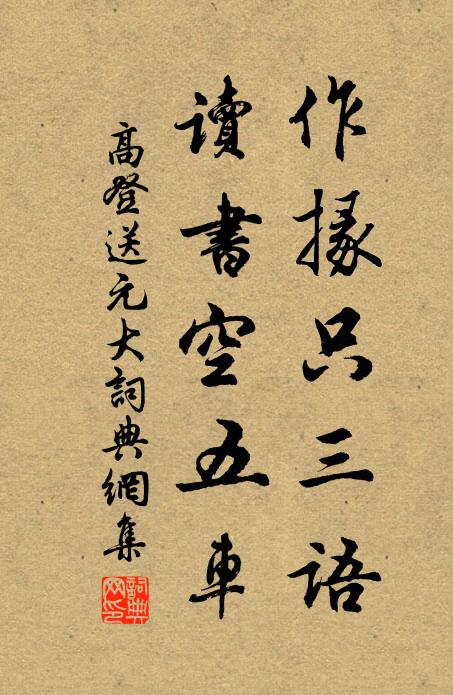 作掾只三語
讀書空五車
高登送元大詞典網集
詞典網印